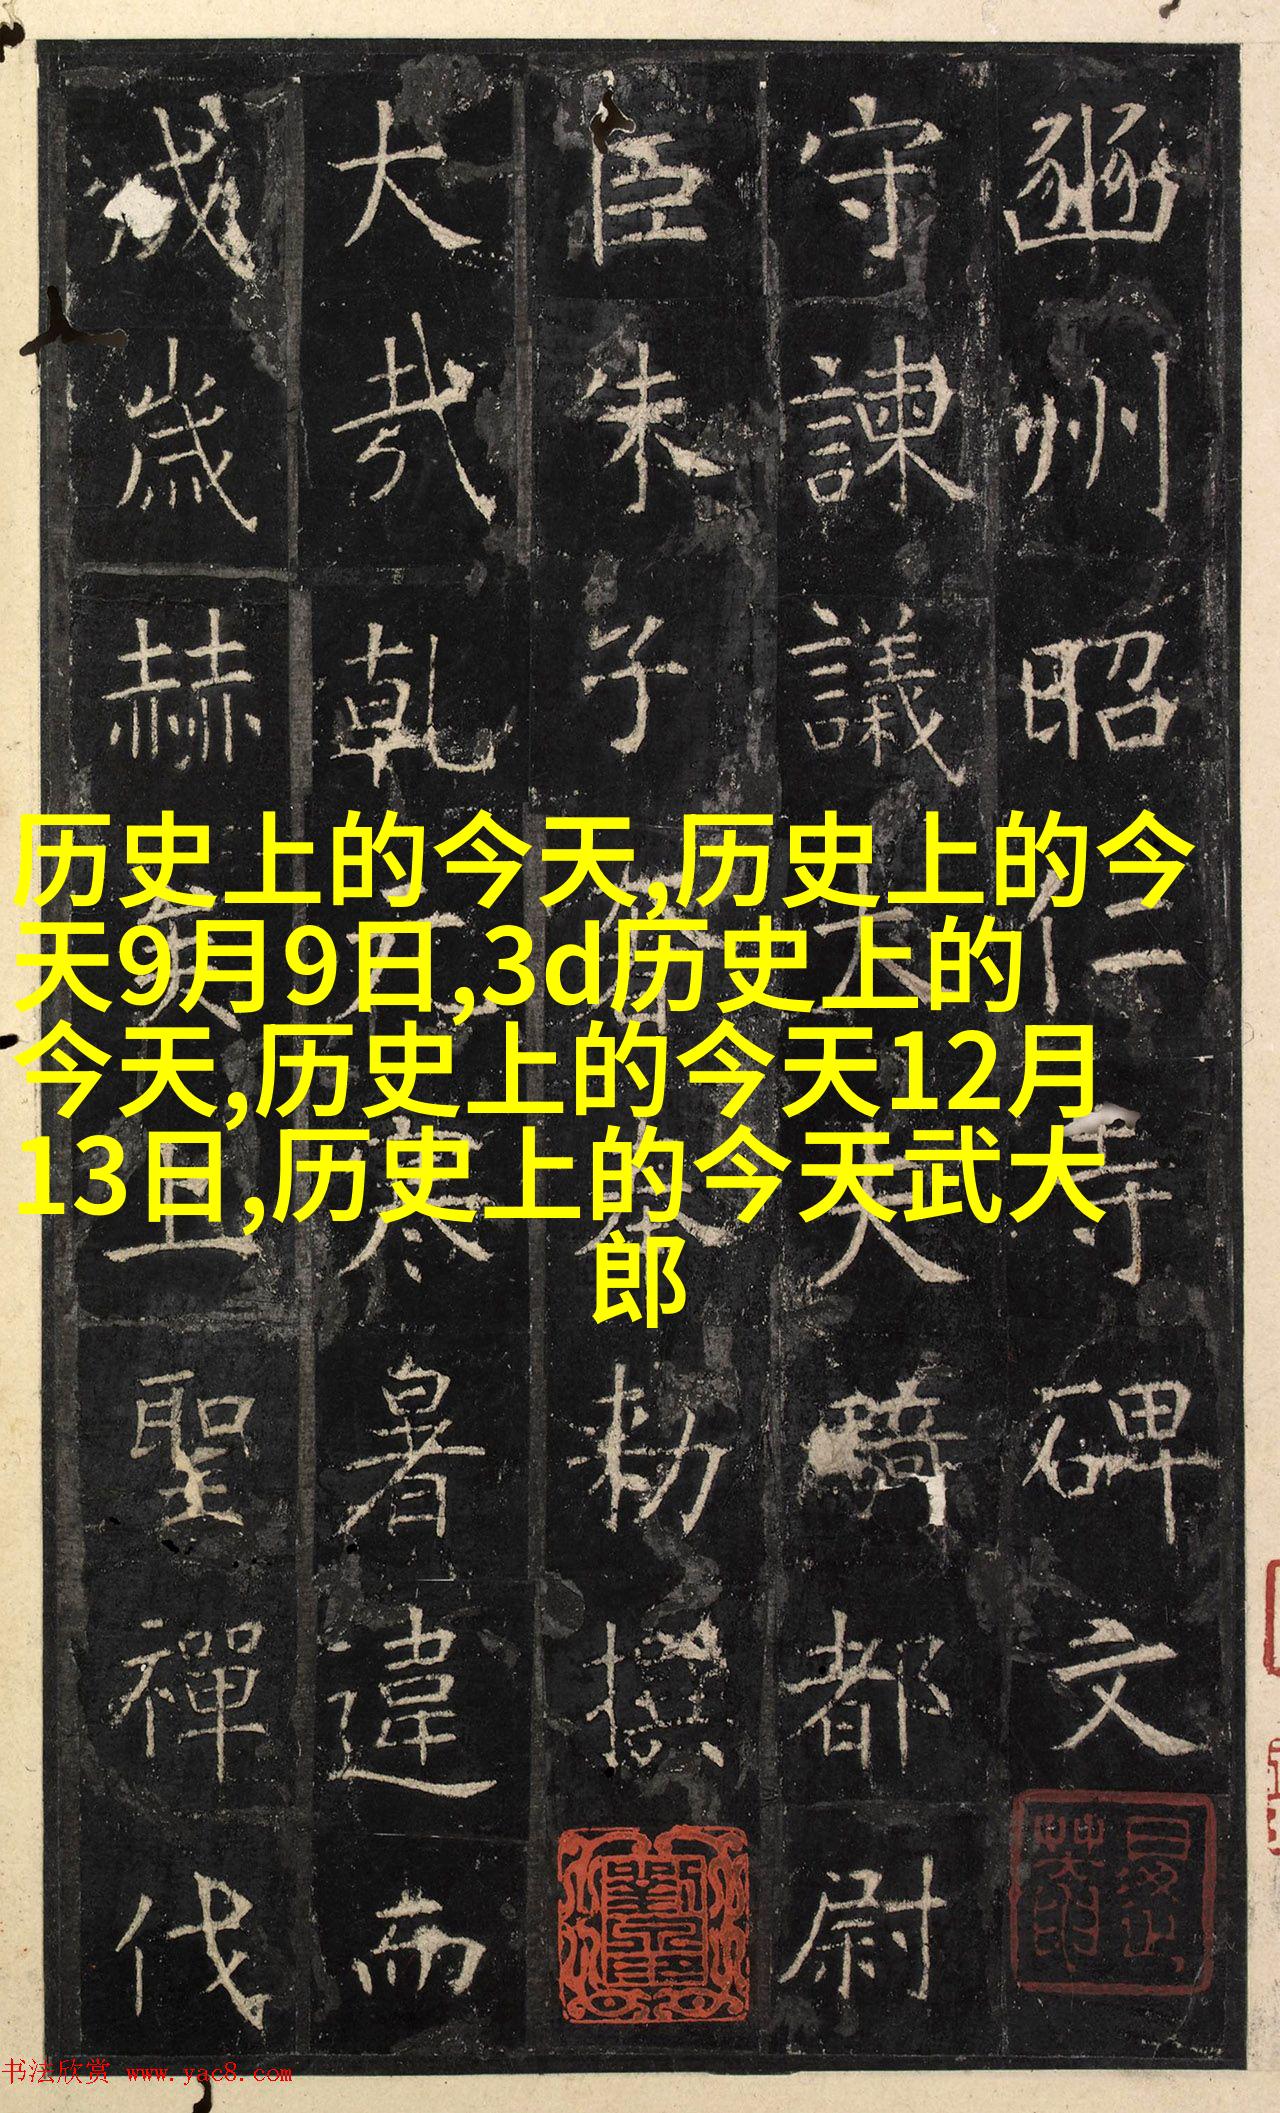 豳州昭仁寺碑文
守諫議大夫騎都尉
臣朱子奢奉勑撰
大哉乾元寒暑違而
成歲赫矣聖禪代
历史上的今天,历史上的今
天9月9日,3d历史上的
今天,历史上的今天12月
13日,历史上的今天武大
郎
书法欣赏 www.yac8.com